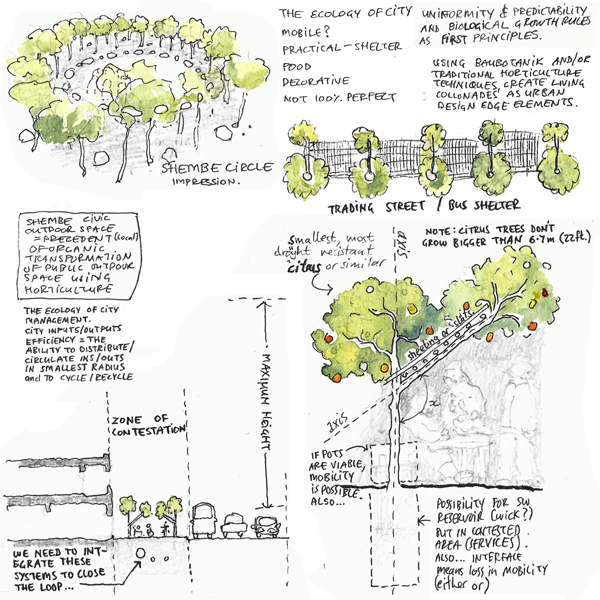 THE ECOLOGY OF CITY
MOBILE?
PRACTICAL - SHELTER
FOOD
DECORATIVE
NOT 100% PERFECT
UNIFORMITY & PREDICTABILITY
AND BIOLOGICAL GROWTH RULES
AS FIRST PRINCIPLES.
USING BAUBOTANIK AND/OR
TRADITIONAL HORTICULTURE
TECHNIQUES, CREATE LIVING
COLLONADES AS URBAN
DESIGN EDGE ELEMENTS.
SHEMBE CIRCLE
IMPRESSION.
TRADING STREET / BUS SHELTER
SHEMBE CIVIC
OUTDOOR SPACE
= PRECEDENT (local)
OF ORGANIC
TRANSFORMATION
OF PUBLIC OUTDOUR
SPACE USING
HORTICULTURE
THE ECOLOGY OF CITY
MANAGEMENT.
CITY INPUTS/OUTPUTS
EFFICIENCY = THE
ABILITY TO DISTRIBUTE/
CIRCULATE INS/OUTS
IN SMALLEST RADIUS
and TO CYCLE/RECYCLE
ZONE OF
CONTESTATION
MAXIMUM HEIGHT
WE NEED TO INT-
EGRATE THESE
SYSTEMS TO CLOSE
THE LOOP...
smallest, most
drought resistant
citrus or similar
axis
NOTE: CITRUS TREES DON'T
GROW BIGGER THAN 6-7m (22ft.)
sheeting or slats
axis
x
IF POTS
ARE VIABLE,
MOBILITY
IS POSSIBLE.
ALSO...
POSSIBILITY FOR SW
RESERVOIR (WICK?)
BUT IN CONTESTED
AREA (SERVICES).
ALSO... INTERFACE
MEANS LOSS IN MOBILITY
(either or)